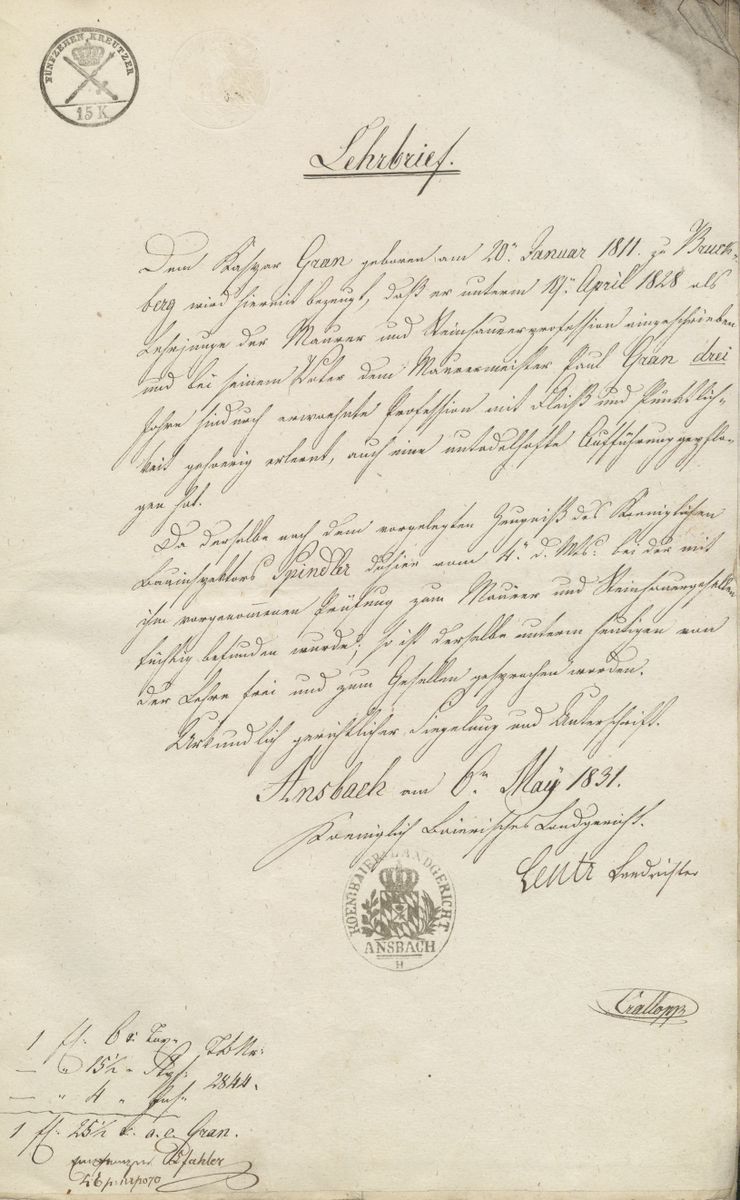 FÜNFZEHEN KREUTZER
15 K
Lehrbrief.
Dem Kaspar Gran geboren am 20n. Januar 1811. zu Bruck-
berg wird hiermit bezeugt, daß er unterm 19n. April 1828 als
Lehrjunge der Maurer und Steinhauerprofession eingeschrieben
und bei seinem Vater dem Maurermeister Paul Gran drei
Jahre hindurch erwaehnte Profession mit Fleiß und Pünktlich-
keit gehoerig erlernt, auch eine untadelhafte Aufführung gepflo-
gen hat.
Da derselbe nach dem vorgelegten Zeugniß des Koeniglichen
Bauinspektors Spindler dahier vom 4n. d. Mts. bei der mit
ihm vorgenommenen Prüfung zum Maurer und Steinhauergesellen
tüchtig befunden wurde; so ist derselbe unterm heutigen von
der Lehre frei und zum Gesellen gesprochen worden.
Urkundlich gerichtlicher Siegelung und Unterschrift.
Ansbach am 6n May 1831.
Koeniglich Baierisches Landgericht.
Lentz Landrichter
KOEN. BAIER. LANDGERICHT
ANSBACH
H
1 fl. 6 x. Tax.
— " 15½ " Stpl. 2844.
— " 4 "
1 fl. 25½ x. a. e. Gran.
Pfahler